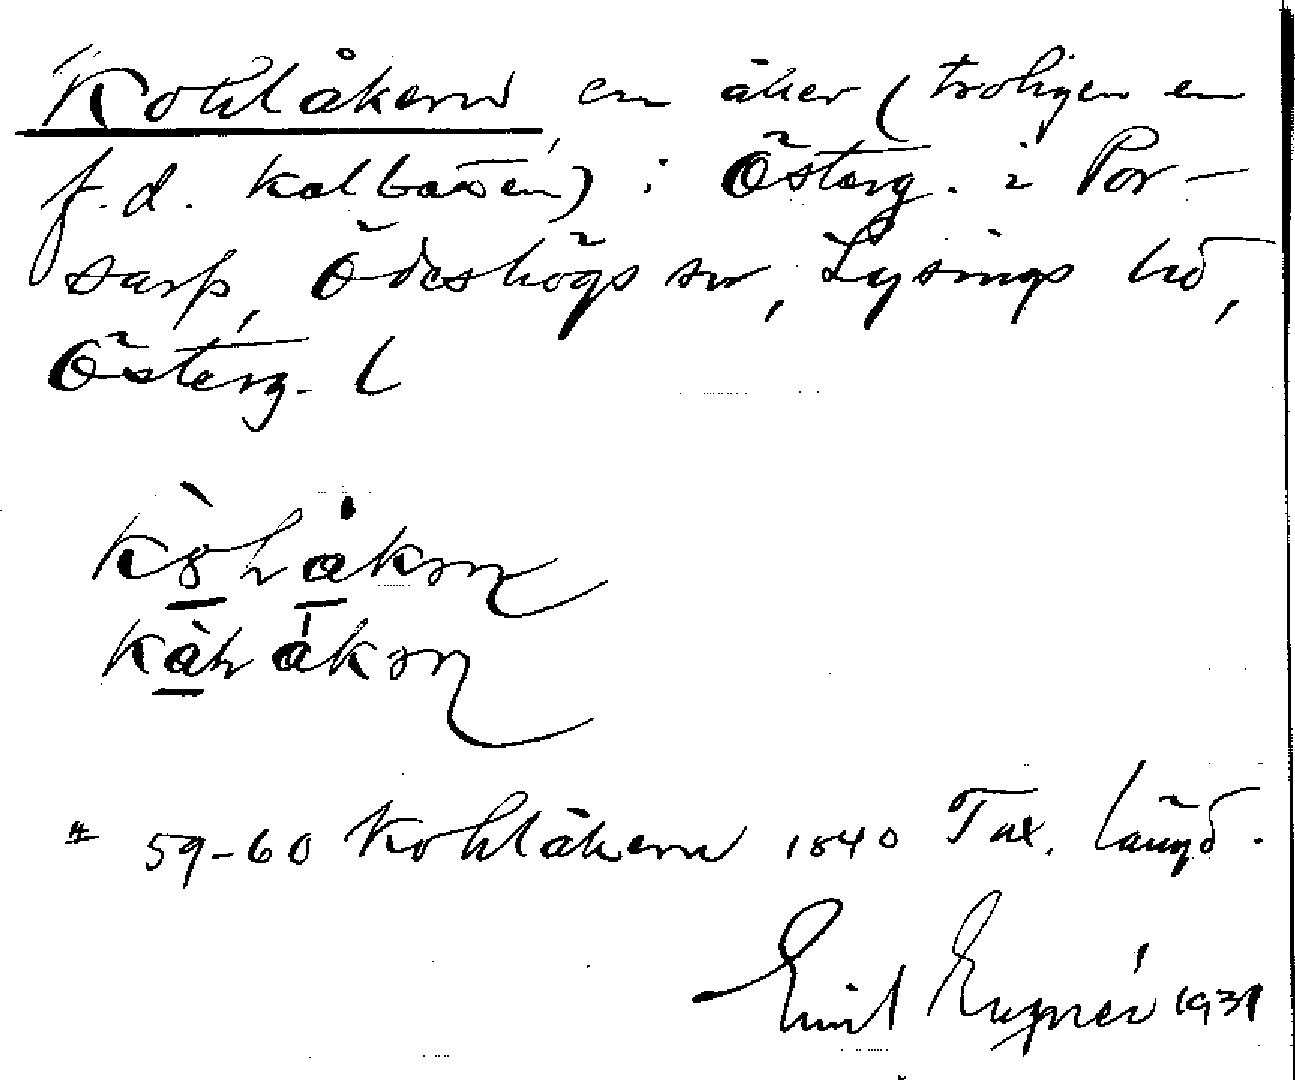 Kohlåkern en åker (troligen en
f.d. kolbotten) i Österg. i Por-
sarp, Ödeshögs sn, Lysings hd,
Österg. l
kòhåkṇ
kàhåkṇ
# 59-60 Kohlåkern 1840 Tax. längd.
Emil 1931